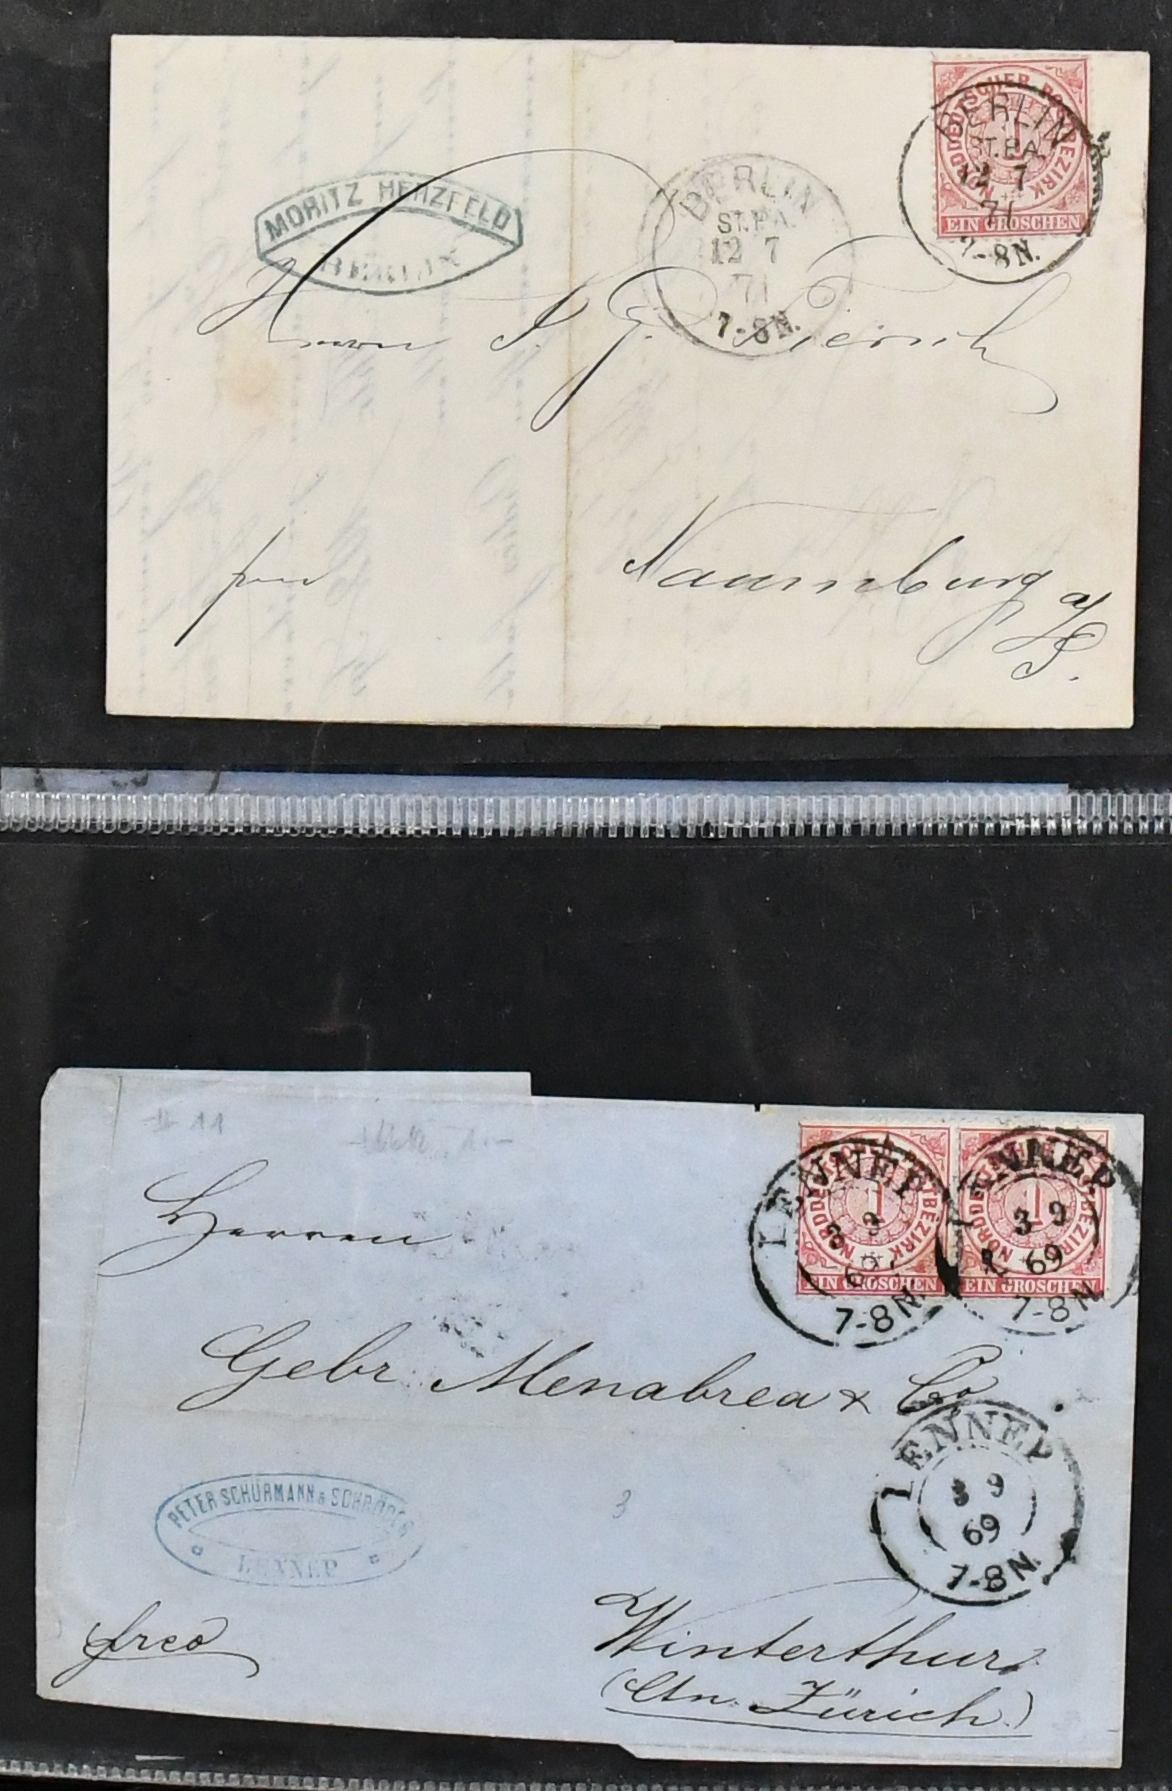 NORDDEUTSCHER POSTBEZIRK
1
EIN GROSCHEN
BERLIN
ST.P.A.
12 7
71
7-8N.
MORITZ HERZFELD
BERLIN
BERLIN
ST.P.A.
12 7
71
7-8N.
Herrn J. G.
Naumburg a/S.
# 11
1.-
NORDDEUTSCHER POSTBEZIRK
1
EIN GROSCHEN
LENNEP
3 9
69
7-8N.
NORDDEUTSCHER POSTBEZIRK
1
EIN GROSCHEN
LENNEP
3 9
69
7-8N.
Herren
Gebr Menabrea & Co
LENNEP
3 9
69
7-8N.
PETER SCHÜRMANN & SCHRÖDER
LENNEP
3
frco
Winterthur
(Ctn. Zürich.)